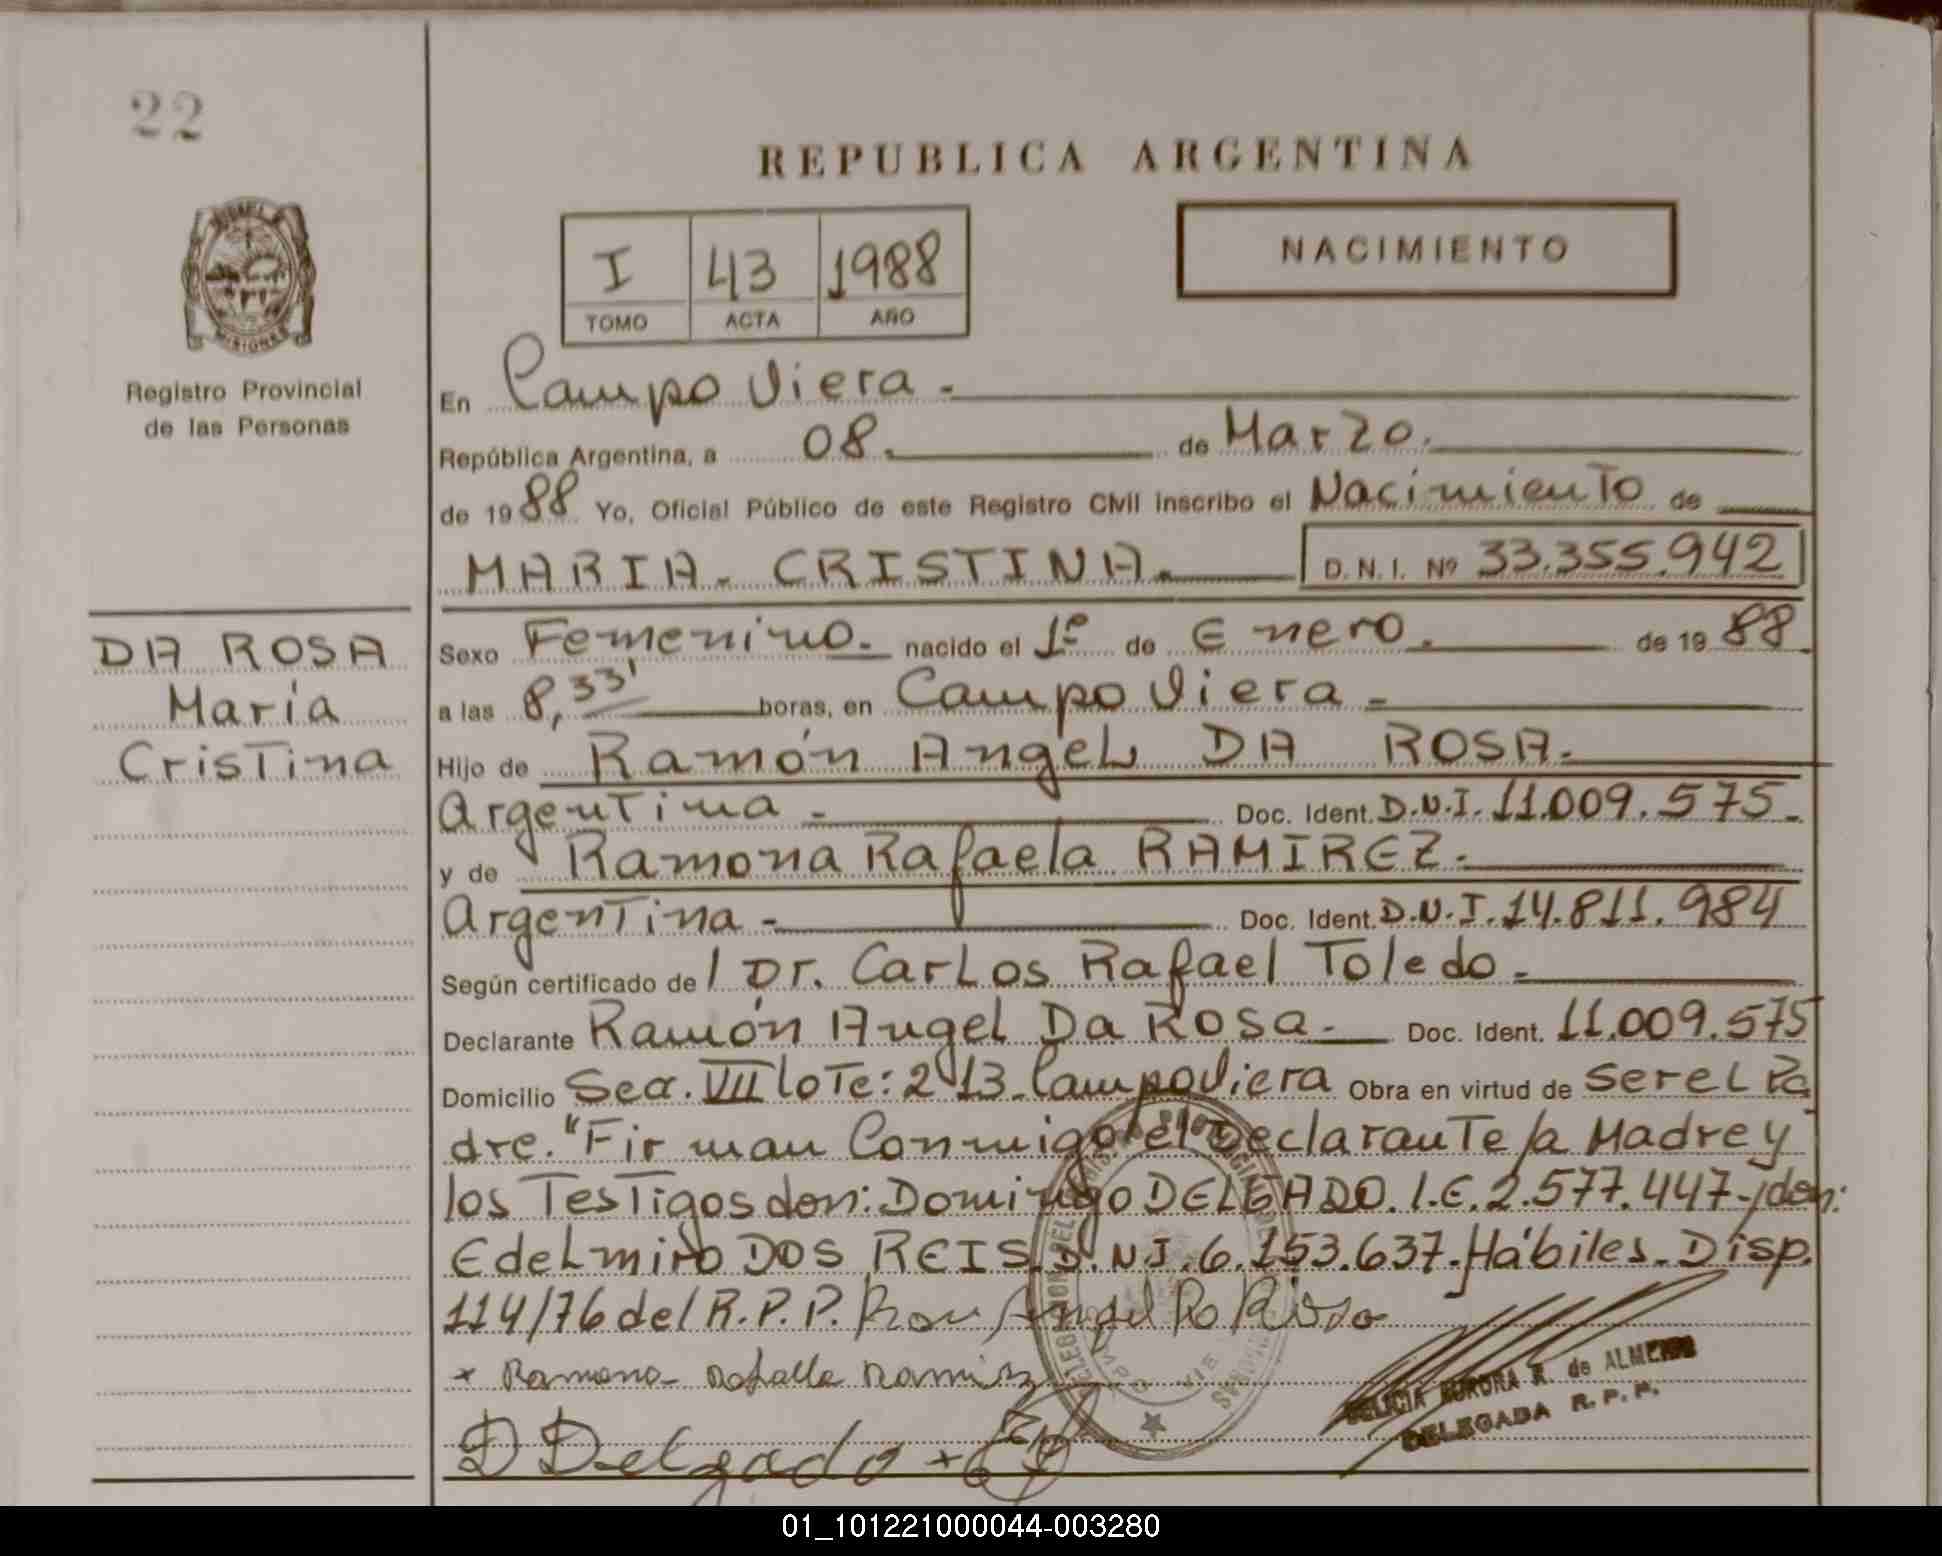 22
REPUBLICA ARGENTINA
I 43 1988
TOMO ACTA AÑO
NACIMIENTO
MISIONES
Registro Provincial
de las Personas
En Campo Viera.
República Argentina, a 08. de Marzo.
de 1988 Yo, Oficial Público de este Registro Civil inscribo el Nacimiento de
MARIA. CRISTINA. D. N. I. Nº 33.355.942
DA ROSA
María
Cristina
Sexo Femenino. nacido el 1º de Enero. de 1988
a las 8,33' horas, en Campo Viera.
Hijo de Ramón Angel DA ROSA.
Argentina. Doc. Ident. D.N.I. 11.009.575.
y de Ramona Rafaela RAMIREZ.
Argentina. Doc. Ident. D.N.I. 14.811.984
Según certificado de l Dr. Carlos Rafael Toledo.
Declarante Ramón Angel Da Rosa. Doc. Ident. 11.009.575
Domicilio Sec. VII lote: 213. Campo Viera Obra en virtud de ser el Pa
dre. "Firman Conmigo el Declarante la Madre y
los Testigos don: Domingo DELGADO. I.E. 2.577.447-y don:
Edelmiro DOS REIS. D.N.I. 6.153.637. Hábiles. Disp.
114/76 del R.P.P. Angel
+ Ramona Rafaela Ramirez
D Delgado +
FELICIA AURORA R. de ALMEIDA
DELEGADA R. P. P.
01_101221000044-003280